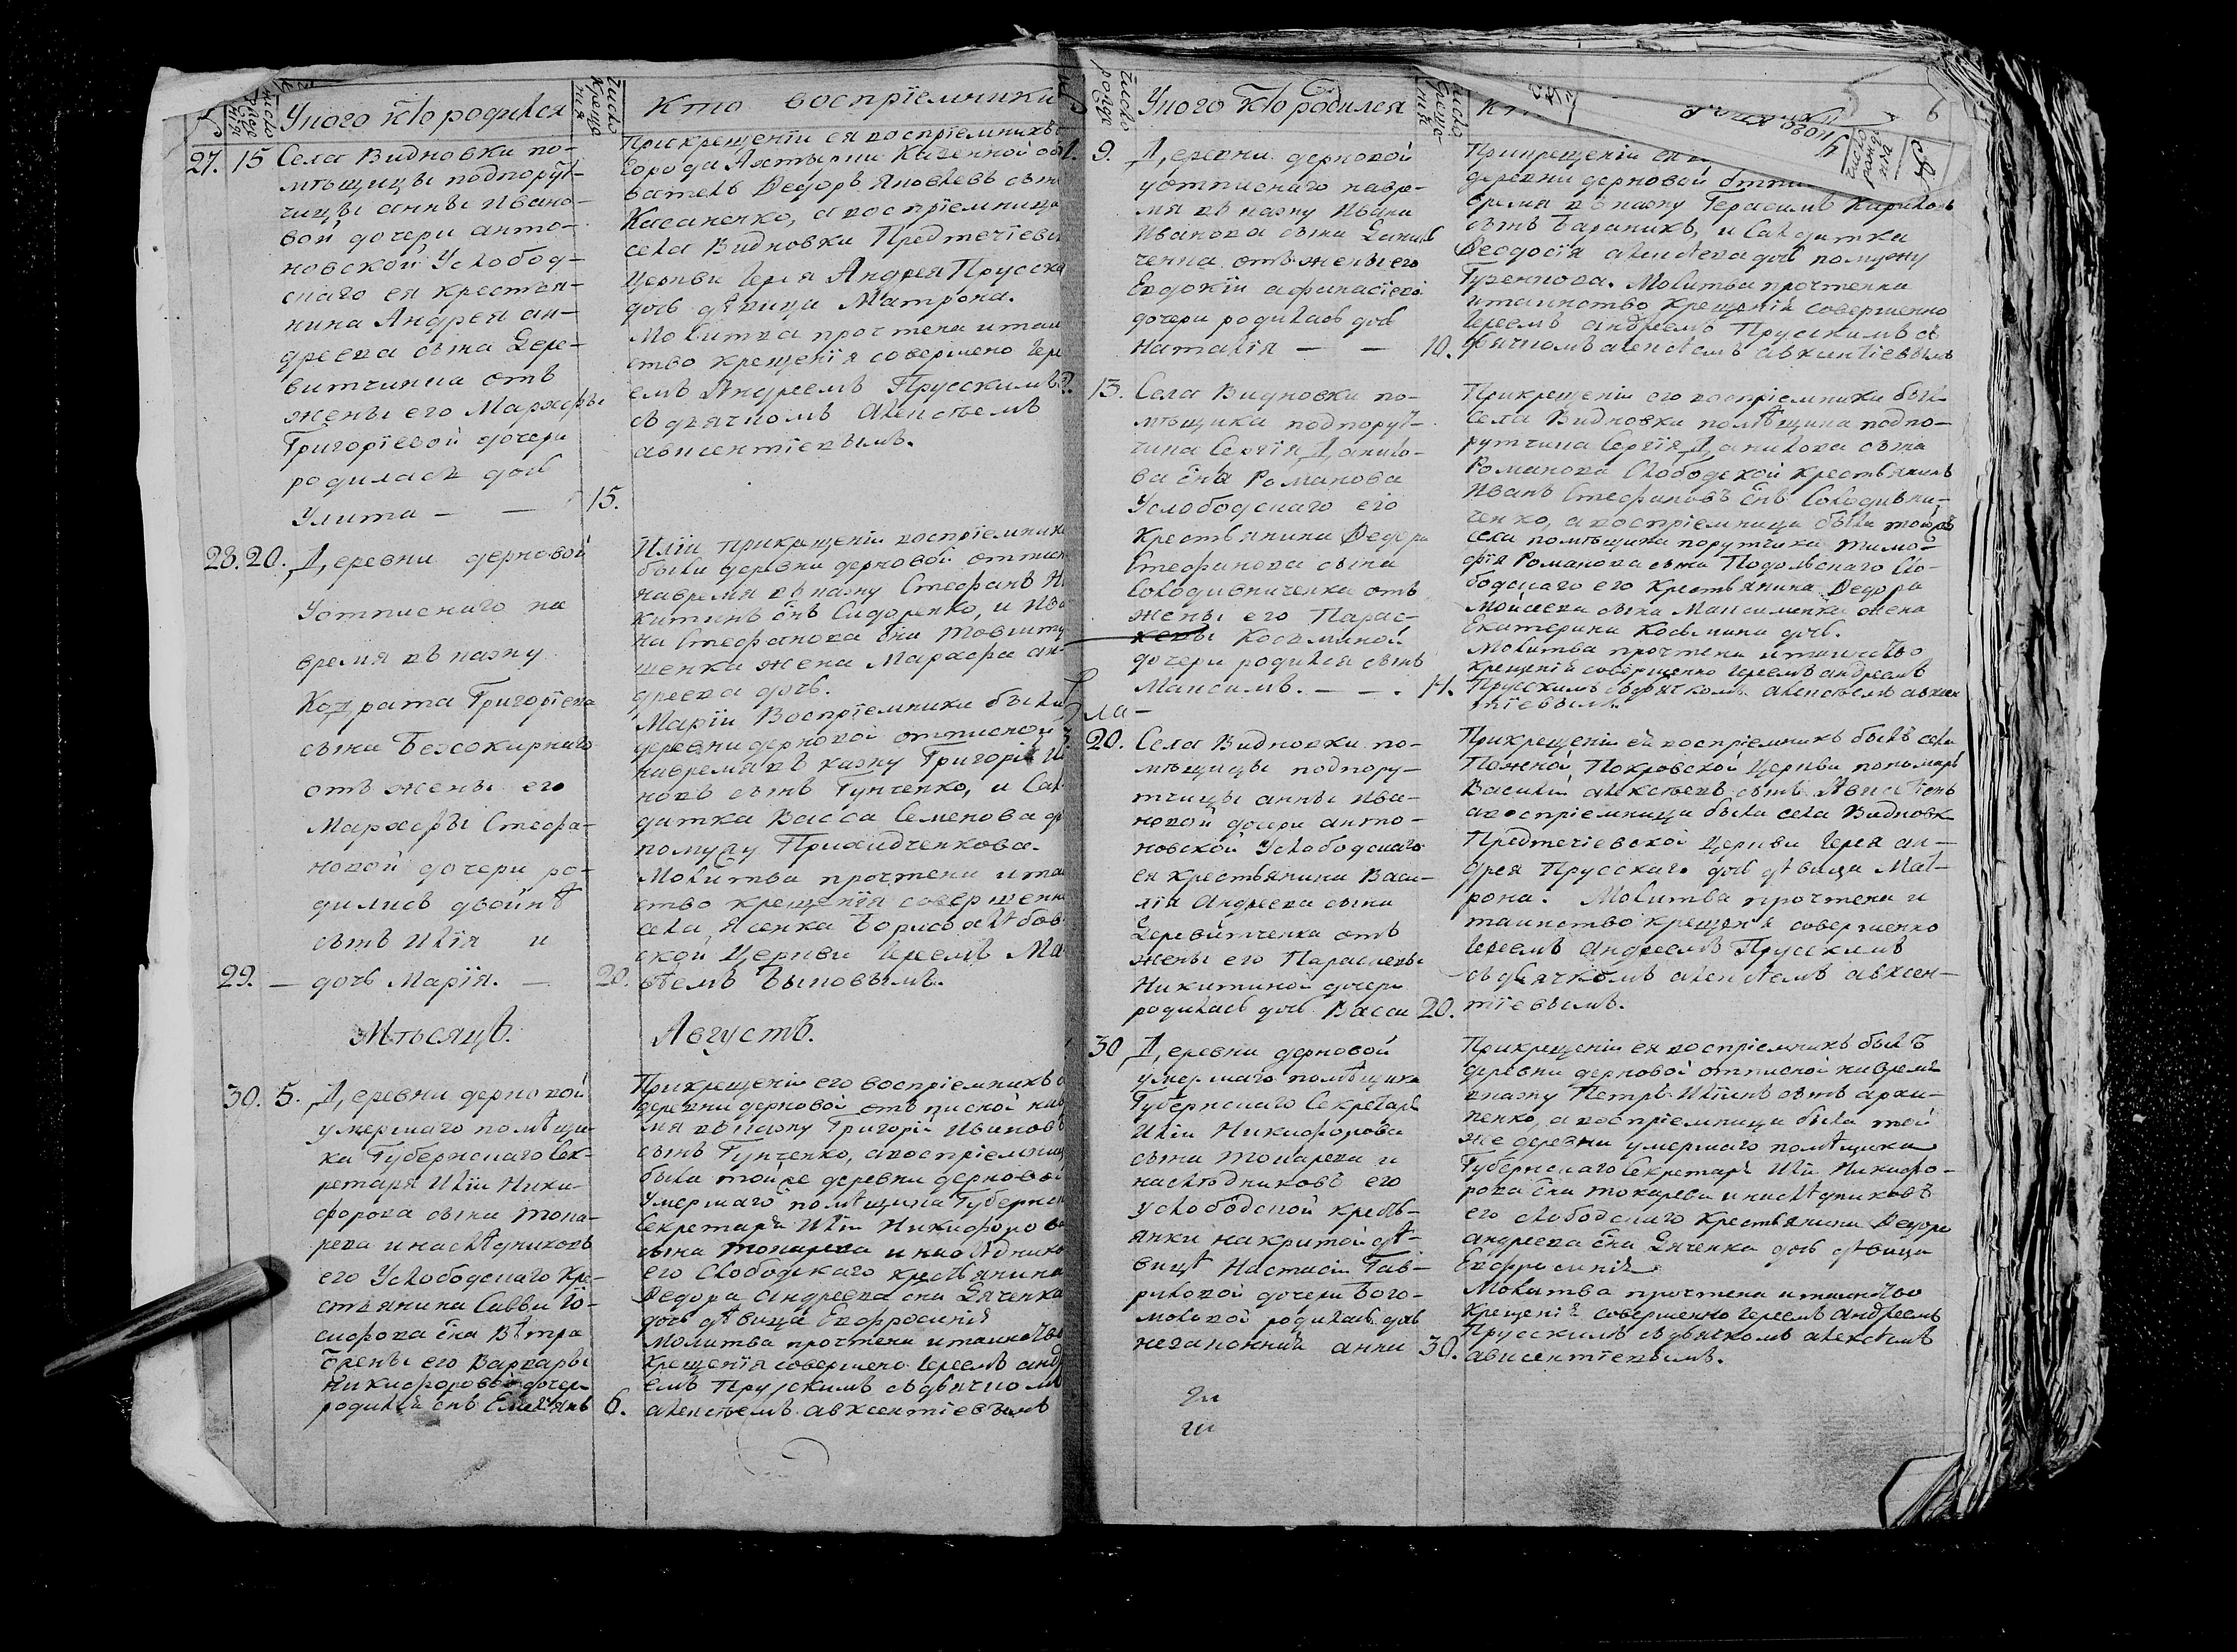 У кого кто родился
Кто восприемники
27. 15 Села Видновки по-
мѣщицы подпорут-
чицы анны Ивано-
вой дочери анто-
новской Услобод-
скаго ея крестья-
нина Андрея ан-
дреева сына Дере-
витчинка отъ
жены его Марѳы
Григорїевой дочери
родилась дочь
Улита — — 15.
При крещенїи ея воспрїемникъ
Города Ахтырки Казенной
Ѳедоръ Яковлевъ сынъ
Касаненко, а воспрїемница
села Видновки Предтечїевс
Церкви Іерея Андрея Прусска
дочь дѣвица Матрона.
Молитва прочтена и таин
ство крещенїя совершено Іере
емъ Андреемъ Прусскимъ
съ дьячкомъ алексѣемъ
авксентїевымъ.
28. 20. Деревни дерновой
Уотписнаго на
время въ казну
Кодрата Григорїева
сына
отъ жены его
Марѳы Стефа-
новой дочери ро-
дились двойнѣ
сынъ Илїя и
29. — дочь Марїя. — 20.
Илїи при крещенїи воспрїемники
были деревни дерновой отписн
на время въ казну Стефанъ Ни
китинъ снъ Сидоренко, и Ива
на Стефанова сна
щенка жена Марѳа ан-
дреева дочь.
Марїи Воспрїемники были
деревни дерновой отписной
на время въ казну Григорїй И
новъ сынъ Гунченко, и Сол
датка Васса Семенова до
по мужу Прихидченкова.
Молитва прочтена и таин
ство крещенїя совершенно
села Ясенка Борисоглѣбов
ской Церкви Іереемъ Ма
ѳѣемъ Быковымъ.
Мѣсяцъ.
Августъ.
30. 5. Деревни дерновой
умершаго помѣщи-
ка Губернскаго Сек-
ретаря Илїи Ники-
форова сына Тока-
рева и наслѣдниковъ
его Услободскаго Кре-
стьянина Саввы Іо-
сифова сна Вѣтра
жены его Варвары
Никифоровой дочери
родился снъ Емелїянъ 6.
При крещенїи его воспрїемникъ
деревни дерновой отписной на
мя въ казну Григорїй Ивановъ
сынъ Гунченко, а воспрїемниц
была той же деревни дерновой
умершаго помѣщика Губернск
Секретаря Илїи Никифоров
сына Токарева и наслѣднико
его слободскаго крестьянина
Ѳедора Андреева сна Дяченка
дочь дѣвица Евфросинїя
Молитва прочтена и таинство
крещенїя совершено Іереемъ анд
емъ Прусскимъ съ дьячкомъ
алексѣемъ авксентїевымъ
У кого кто родился
6
9. Деревни дерновой
уотписнаго навре-
мя въ казну Ивана
Иванова сына
отъ жены его
Евдокїи афанасїевой
дочери родилась дочь
Наталїя — — 10.
При крещенїи ея
деревни дерновой отпи
время въ казну Герасимъ
сынъ Бараникъ, и Солдатка
Ѳеодосїя алексѣева дочь по мужу
Гузенкова. Молитва прочтенна
и таинство крещенїя совершенно
Іереемъ андреемъ Прусскимъ съ
дьячкомъ алексѣемъ авксентїевымъ
13. Села Видновки по-
мѣщика подпорут-
чика Сергїя Данило-
ва снa Романова
Услободскаго его
Крестьянина Ѳедора
Стефанова сына
Солодивниченка отъ
жены его Парас-
кевы Косьминой
дочери родился сынъ
Максимъ. — — 14.
При крещенїи его воспрїемники были
села Видновки помѣщика подпо-
рутчика Сергїя Данилова сына
Романова Слободской крестьянинъ
Иванъ Стефановъ снъ Солодивни-
ченко, а воспрїемница была той же
села помѣщика порутчика тимо-
фїя Романова сына Подольскаго Сло-
бодскаго его крестьянина Ѳедора
Мойсеева сына Максименка жена
Екатерина Косьмина дочь.
Молитва прочтена и таинство
крещенїя совершенно Іереемъ андреемъ
Прусскимъ съ дьячкомъ алексѣемъ авксен
тїевымъ.
20. Села Видновки по-
мѣщицы подпору-
тчицы анны Ива-
новой дочери анто-
новской Услободскаго
ея крестьянина Васи-
лїя Андреева сына
Деревитченка отъ
жены его Параскевы
Никитиной дочери
родилась дочь Васса 20.
При крещенїи ея воспрїемникъ былъ села
Пожной Покровской Церкви пономарь
Василїй алексѣевъ сынъ
а воспрїемница была села Видновк
Предтечїевской Церкви Іерея ан-
дрея Прусскаго дочь дѣвица Мат-
рона. Молитва прочтена и
таинство крещенїя совершенно
Іереемъ Андреемъ Прусскимъ
съ дьячкомъ алексѣемъ авксен-
тїевымъ.
30 Деревни дерновой
умершаго помѣщика
Губернскаго Секретаря
Илїи Никифорова
сына Токарева и
наслѣдниковъ его
услободской кресть-
янки накритой дѣ-
вицѣ Настасїи Гав-
риловой дочери Бого-
моловой родилась дочь
незаконная анна 30.
При крещенїи ея воспрїемникъ былъ
деревни дерновой отписной на время
вказну Петръ Илїинъ сынъ архи-
пенко, а воспрїемница была той
же деревни умершаго помѣщика
Губернскаго Секретаря Илїи Никифо-
рова сна Токарева и наслѣдниковъ
его слободскаго крестьянина Ѳедора
андреева сна Дяченка дочь дѣвица
Евфросинїя
Молитва прочтена и таинство
Крещенїя совершенно Іереемъ андреемъ
Прусскимъ съ дьячкомъ алексѣемъ
авксентїевымъ.